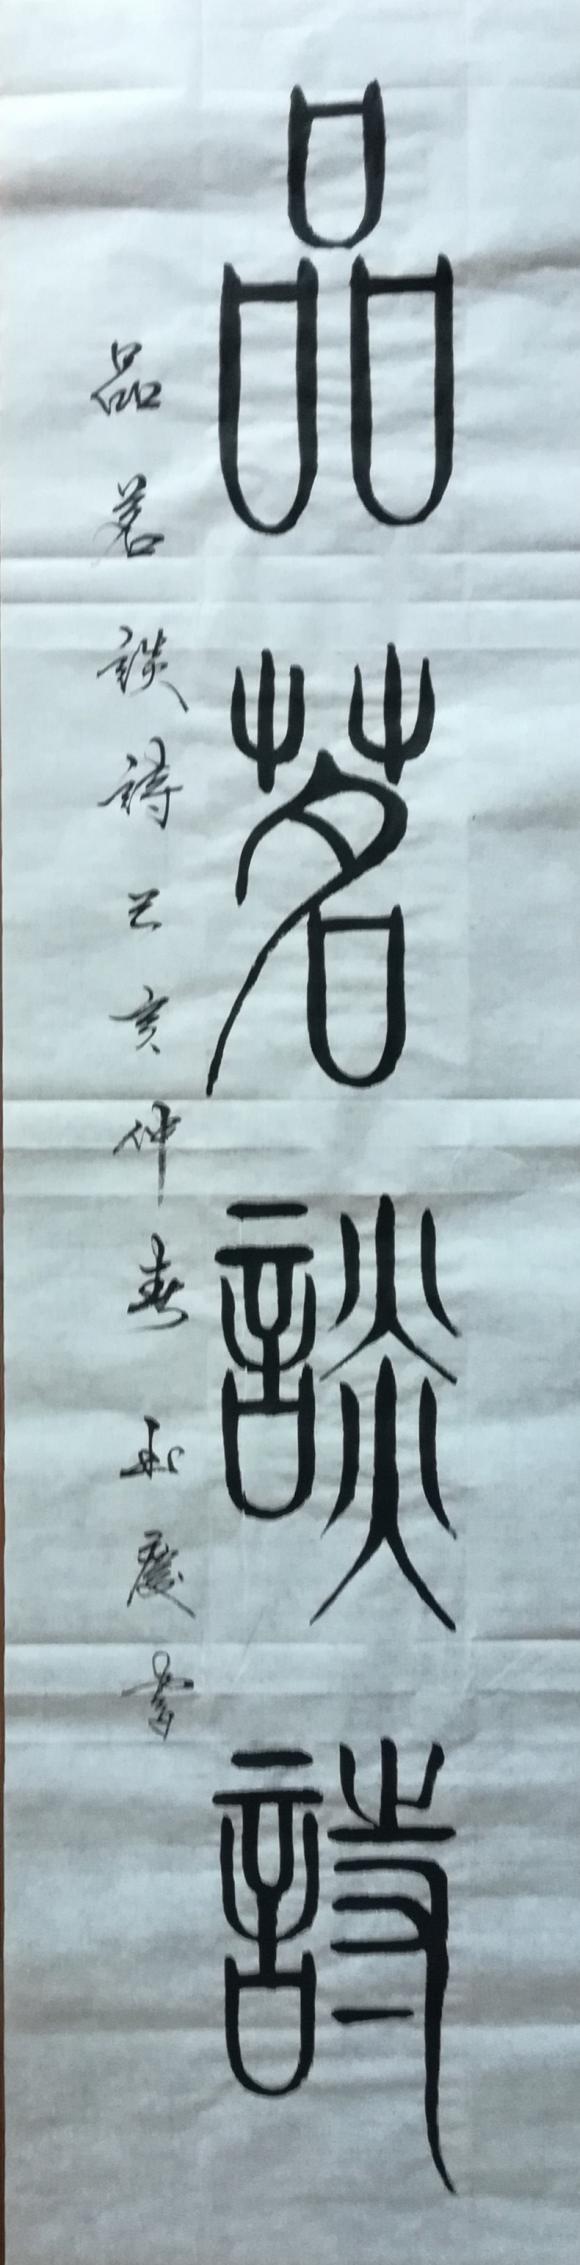 品茗談詩
品茗談詩己亥仲春玉慶書